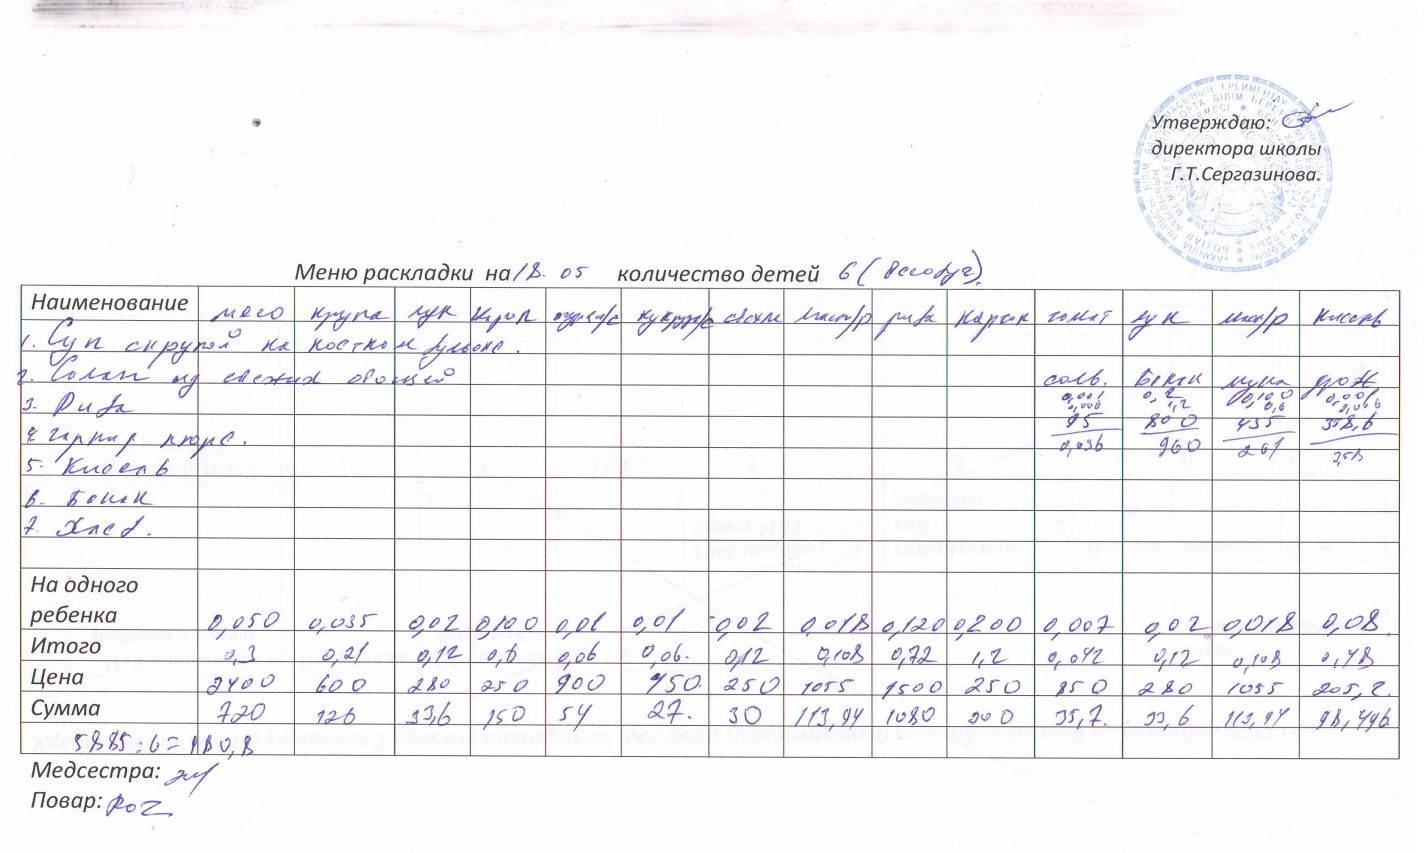 Утверждаю:
директора школы
Г.Т.Сергазинова.
Меню раскладки на 18. 05 количество детей 6
Наименование мясо крупа лук карт свежи масл/р рыба картоф томат лук масл/р кисель
1. Суп с крупой на костном бульоне.
2. Салат из свежих овощей соль. Банан мука дрож
3. Рыба 0,001 0,2 0,100 0,001
0,006 1,2 0,6 0,006
4. гарнир пюре. 95 800 435 358,6
0,036 960 261
5. Кисель
6. Банан
7. Хлеб.
На одного
ребенка 0,050 0,035 0,02 0,100 0,01 0,01 0,02 0,018 0,120 0,200 0,007 0,02 0,018 0,08.
Итого 0,3 0,21 0,12 0,6 0,06 0,06. 0,12 0,108 0,72 1,2 0,042 0,12 0,108 0,48
Цена 2400 600 280 250 900 450. 250 1055 1500 250 850 280 1055 205,2.
Сумма 720 126 33,6 150 54 27. 30 113,94 1080 300 35,7. 33,6 113,94 98,496
5885 : 6 = 980,8
Медсестра:
Повар: